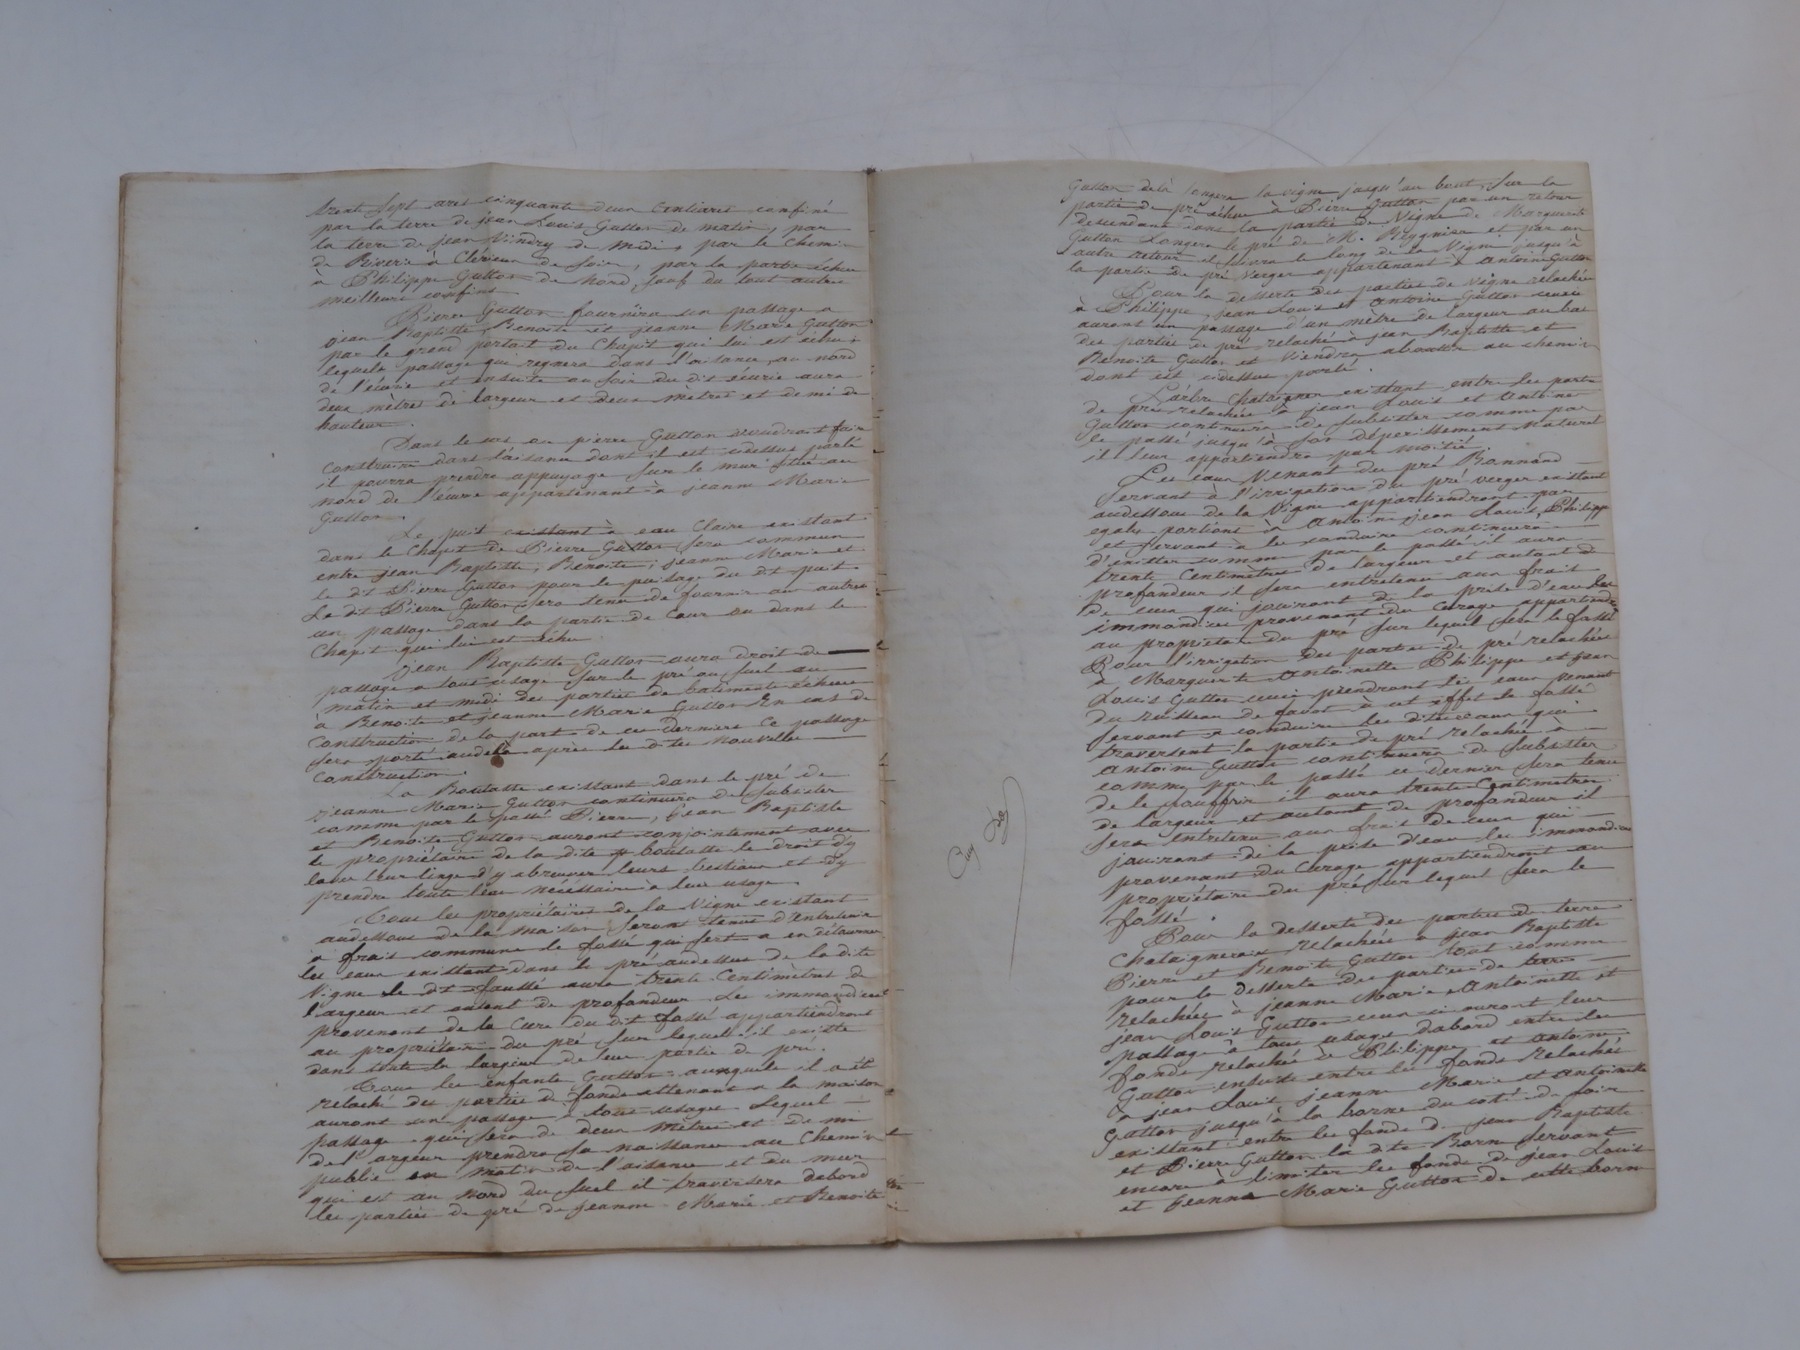 trente sept ares cinquante deux Centiares confiné
par la terre de jean Louis Gutton de matin, par
la terre de jean Vindry de midi, par le Chemin
de Riverie à Clérieux de soir, par la partie échue
à Philippe Gutton de Nord, sauf du tout autres
meilleurs confins.
Pierre Gutton fournira un passage a
jean Baptiste, Benoite et jeanne Marie Gutton
par le grend portait du Chapit qui lui est échu,
lequels passage qui regnera dans l'aisance, au nord
de l'écurie et ensuite au soir du dit écurie aura
deux mètres de largeur et deux metres et demi de
hauteur.
Dans le cas ou pierre Gutton voudrait faire
construire dans l'aisance dont il est cidessus parlé
il pourra prendre appuyage sur le mur situé au
nord de l'écurie appartenant à jeanne Marie
Gutton.
Le puit existant à eau Claire existant
dans le Chapit de Pierre Gutton sera commun
entre jean Baptiste, Benoite, jeanne Marie et
le dit Pierre Gutton pour le puisage du dit puit
Le dit Pierre Gutton sera tenu de fournir aux autres
un passage dans la partie de Cour ou dans le
Chapit qui lui est échu.
jean Baptiste Gutton aura droit de
passage a tous usage sur le pré ou suel au
matin et midi des parties de batiments échues
à Benoite et jeanne Marie Gutton En cas de
Construction de la part de ces derniers Ce passage
sera porté audelà après les dites nouvelles
Construction.
La Boutasse existant dans le pré de
jeanne Marie Gutton continuera de subsister
comme par le passé Pierre, jean Baptiste
et Benoite Gutton auront conjointement avec
le propriétaire de la dite boutasse le droit d'y
laver leur linge d'y abreuver leurs bestiaux et d'y
prendre toute l'eau nécessaire à leur usage.
Tous les propriétaires de la Vigne existant
audessous de la maison seront tenus d'entretenir
à frais commune le fossé qui sert a en détourner
les eaux existant dans le pré audessus de la dite
Vigne le dit faussé aura trente Centimètres de
largeur et autent de profondeur Les immondices
provenant de la Cure du dit fossé appartiendront
au propriétaire du pré sur lequel il existe
dans toute la largeur de leur portie de pré.
Tous les enfants Gutton auxquels il a été
relaché des parties de fonds attenant a la maison
auront un passage à tous usages Lequel
passage qui sera de deux mètres et demi
de l'argeur prendra sa naissance au Chemin
public en matin de l'aisance et du mur
qui est au Nord du suel il traversera dabord
les parties de pré de jeanne Marie et Benoite
Gutton delà longera la vigne jusqu'au bout, sur la
partie de pré échue à Pierre Gutton par un retour
descendant dans la partie de Vigne de Marguerite
Gutton Longera le pré de M. et par un
autre retour il suivra le long de la Vigne jusqu'à
la partie de pré Verger appartenant à Antoine Gutton
Pour la desserte des parties de Vigne relachées
à Philippe, jean Louis et Antoine Gutton ceux ci
auront un passage d'un mètre de largeur au bas
des parties de pré relaché à jean Baptiste et
Benoite Gutton et Viendra aboutir au chemin
dont est cidessus porté.
L'arbre Chataigner existant entre les partie
de pré relachées à jean Louis et Antoine
Gutton continuera de subsister comme par
le passé jusqu'à son dépérissement naturel
il leur appartiendra par moitié.
Les eaux Venant du pré Bonnand
servant à l'irrigation du pré verger existant
audessous de la Vigne appartiendront par
egales portions à Antoine jean Louis, Philippe
et servant à le conduire continuera
d'exister comme par le passé il aura
trente Centimètres de largeur et autant de
profondeur il sera entretenu aux frais
de ceux qui jouiront de la prise d'eau les
immondices provenant du Curage appartiendra
au propriétaire du pré sur lequel sera le fossé
Pour l'irrigation des parties de pré relachées
à Marguerite Antoinette Philippe et jean
Louis Gutton ceuxci prendront les eaux venant
du ruisseau de à cet effet le fossé
servant à conduire les dites eaux qui
traversent la partie de pré relachée à
Antoine Gutton continuera de subsister
comme par le passé ce dernier sera tenu
de le souffrir il aura trente Centimètres
de largeur et autant de profondeur il
sera entretenu aux frais de ceux qui
jouiront de la prise d'eau les immondices
provenant du Curage appartiendront au
propriétaire du pré sur lequel sera le
fossé.
Pour la desserte des parties de terre
Chataigneraie relachées à jean Baptiste
Pierre et Benoite Gutton tout comme
pour la desserte des parties de terre
relachées à jeanne Marie Antoinette et
jean Louis Gutton ceux-ci auront leur
passage à tous usages d'abord entre les
fonds relachés à Philippe et Antoine
Gutton ensuite entre les fonds relachés
à jean Louis jeanne Marie et Antoinette
Gutton jusqu'à la borne du coté de soir
existant entre les fonds de jean Baptiste
et Pierre Gutton la dite Borne servant
encore à limiter les fonds de jean Louis
et jeanne Marie Gutton de cette borne